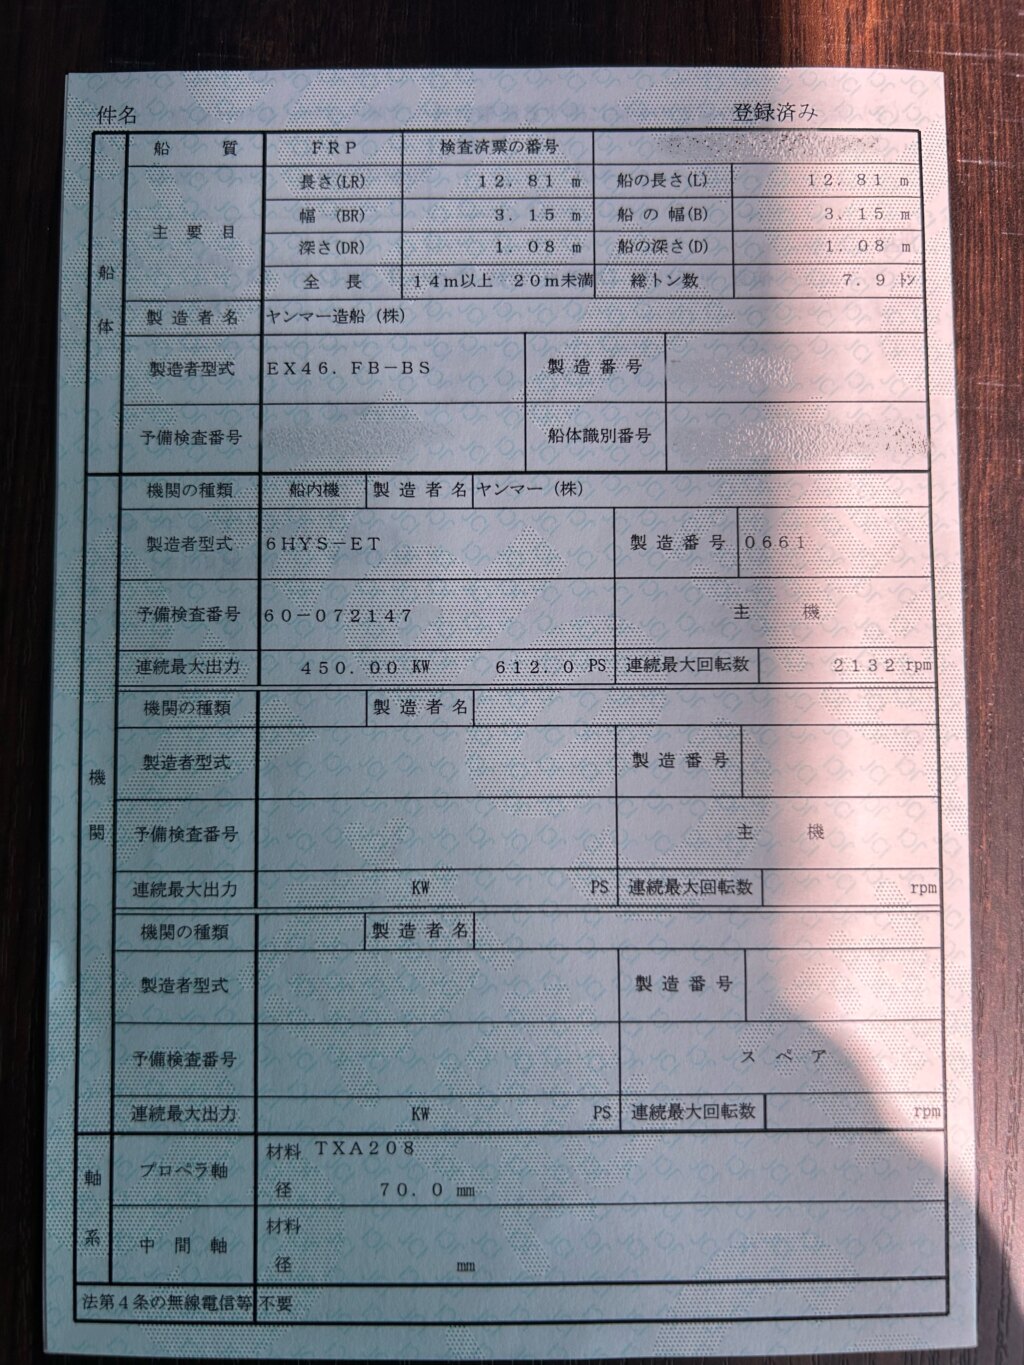 件名 登録済み
船体
船 質 FRP 検査済票の番号
主要目 長さ(LR) 12.81 m 船の長さ(L) 12.81 m
幅 (BR) 3.15 m 船の幅(B) 3.15 m
深さ(DR) 1.08 m 船の深さ(D) 1.08 m
全 長 14m以上 20m未満 総トン数 7.9 トン
製造者名 ヤンマー造船(株)
製造者型式 EX46.FB-BS 製造番号
予備検査番号 船体識別番号
機関
機関の種類 船内機 製造者名 ヤンマー(株)
製造者型式 6HYS-ET 製造番号 0661
予備検査番号 60-072147 主 機
連続最大出力 450.00 KW 612.0 PS 連続最大回転数 2132 rpm
機関の種類 製造者名
製造者型式 製造番号
予備検査番号 主 機
連続最大出力 KW PS 連続最大回転数 rpm
機関の種類 製造者名
製造者型式 製造番号
予備検査番号 スペア
連続最大出力 KW PS 連続最大回転数 rpm
軸系
プロペラ軸 材料 TXA208
径 70.0 mm
中間軸 材料
径 mm
法第4条の無線電信等 不要